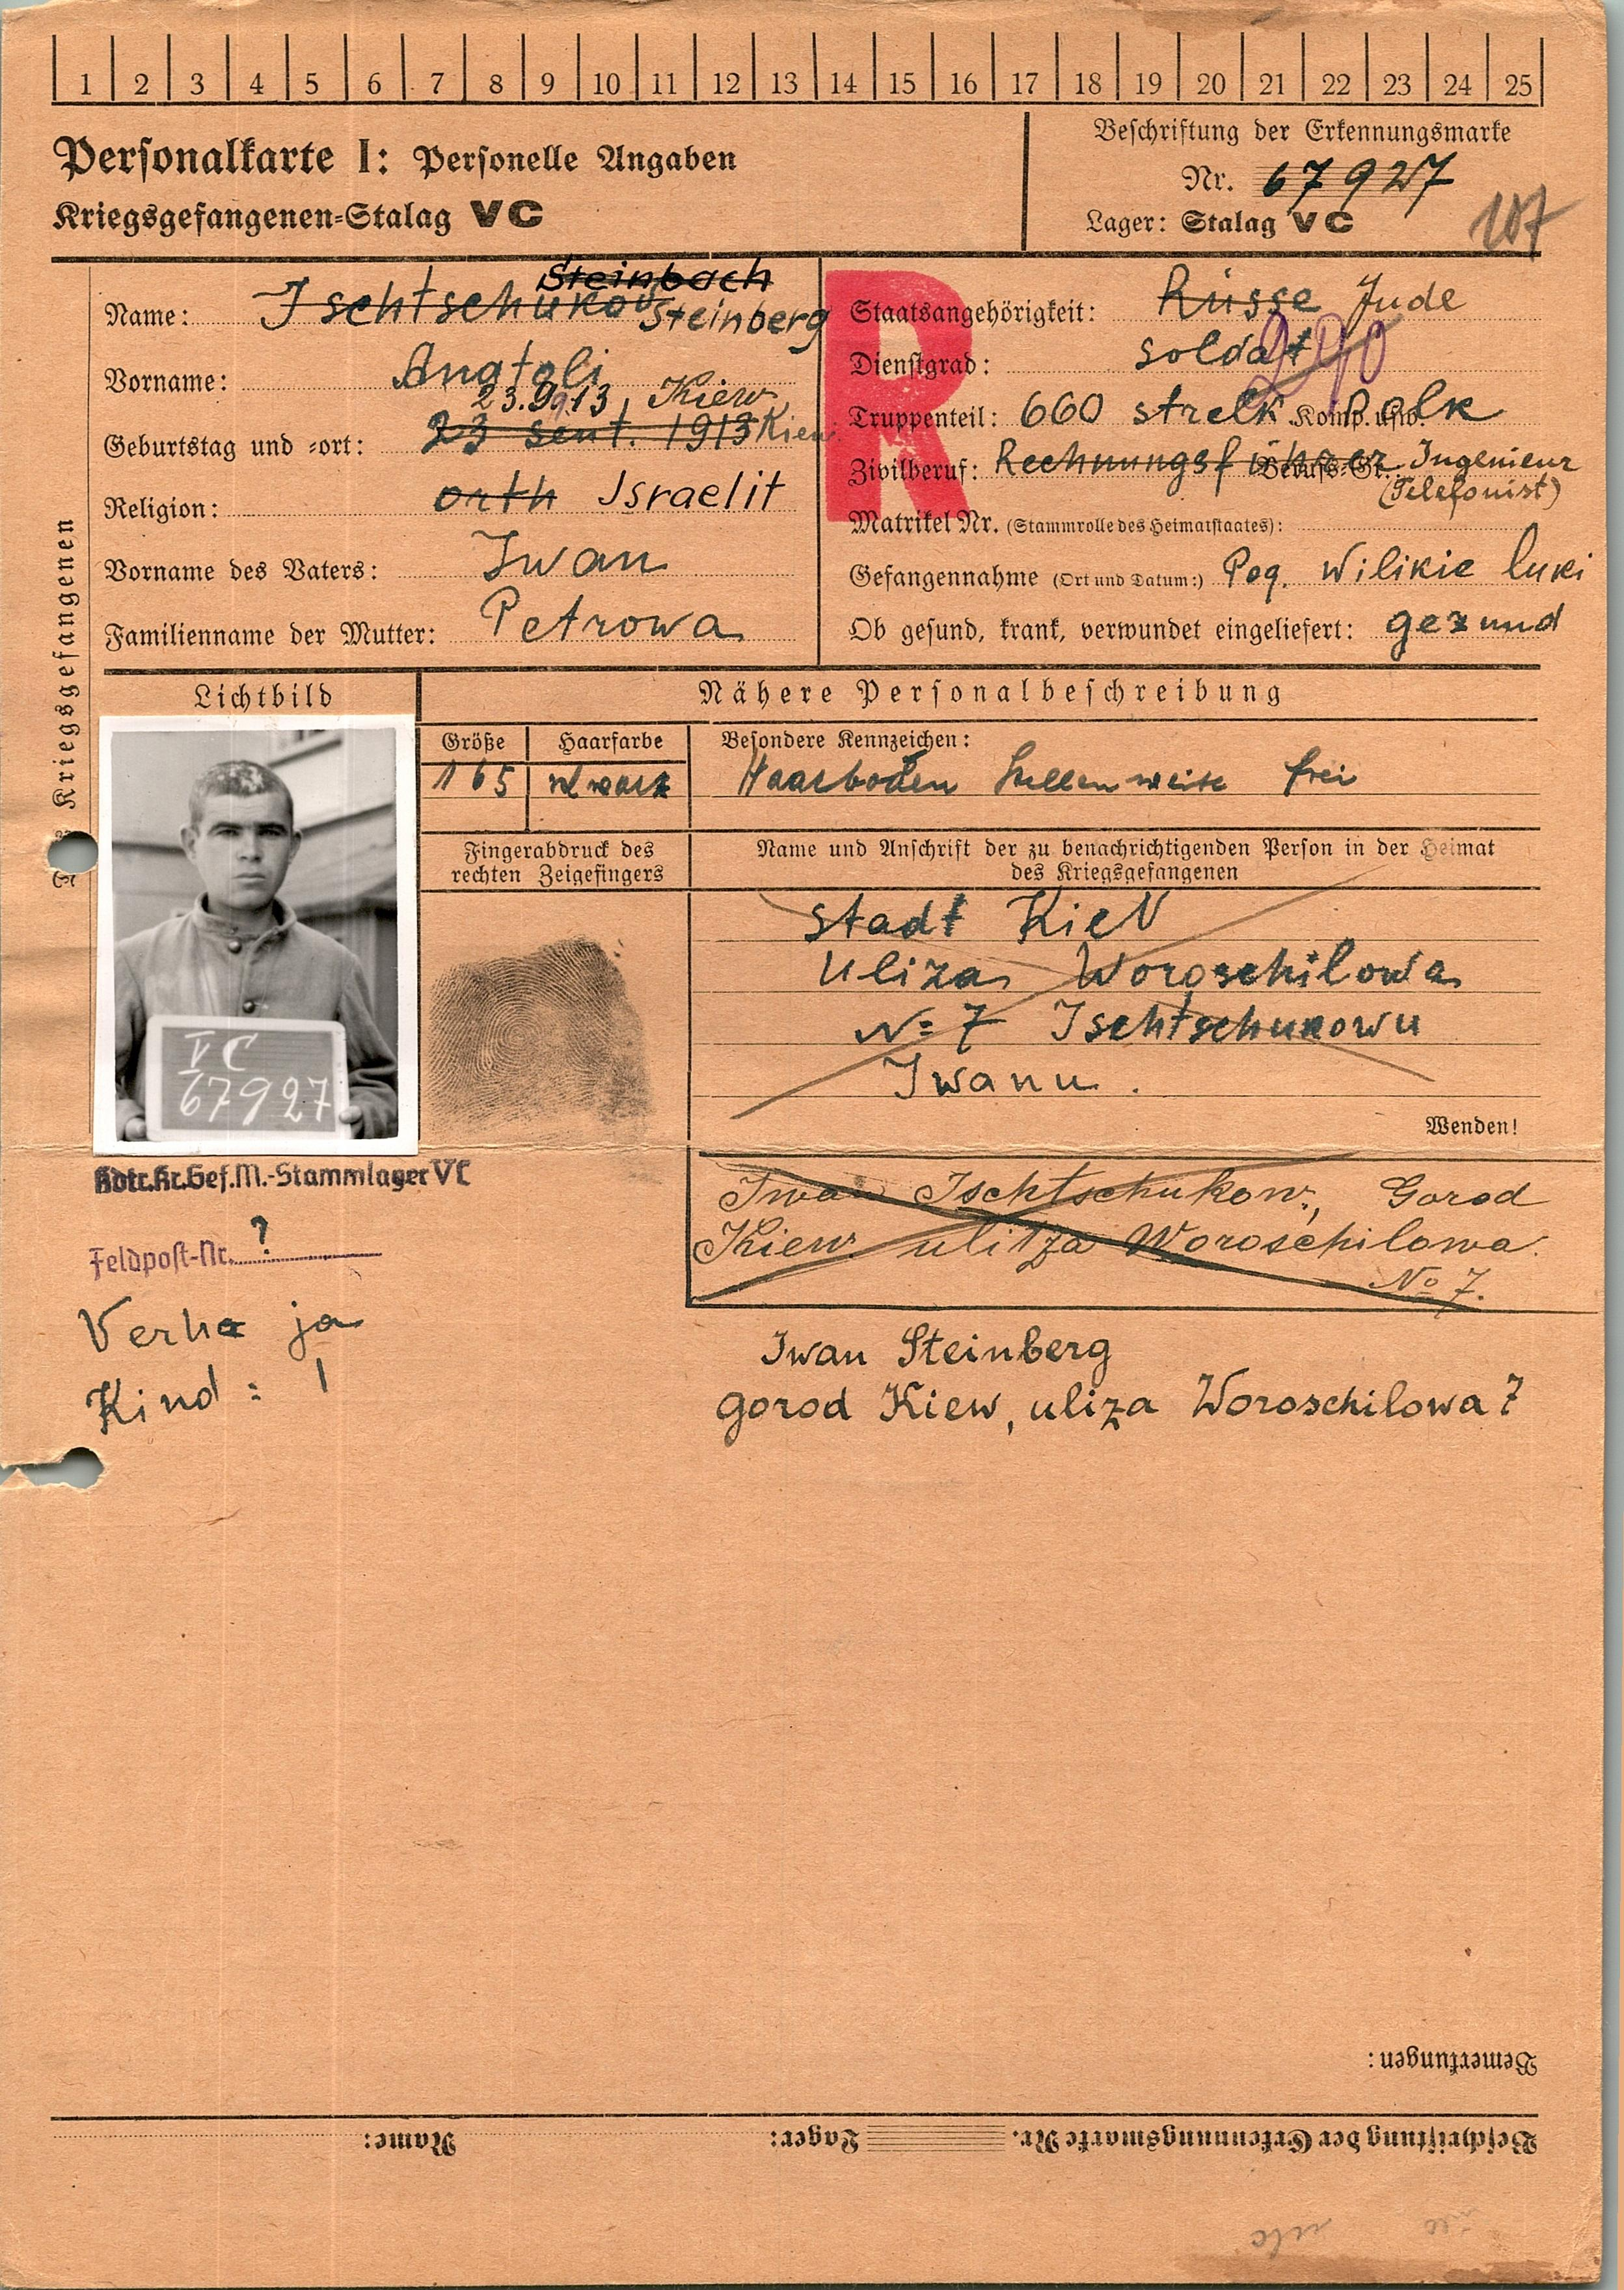 1 2 3 4 5 6 7 8 9 10 11 12 13 14 15 16 17 18 19 20 21 22 23 24 25
Personalkarte I: Personelle Angaben
Kriegsgefangenen-Stalag VC
Beschriftung der Erkennungsmarke
Nr. 67927
Lager: Stalag VC
107
Steinbach
Name: Ischtschukow Steinberg
Vorname: Anatoli
23.9.13, Kiew
Geburtstag und -ort: 23 sent. 1913 Kiew
Religion: orth Israelit
Vorname des Vaters: Iwan
Familienname der Mutter: Petrowa
R
Staatsangehörigkeit: Russe Jude
Dienstgrad: soldat
290
Truppenteil: 660 strelk Komp. usw. Polk
Zivilberuf: Rechnungsführer Berufs-Gr. Ingenieur
(Telefonist)
Matrikel Nr. (Stammrolle des Heimatstaates):
Gefangennahme (Ort und Datum:) Pog. Wilikie luki
Ob gesund, krank, verwundet eingeliefert: gezund
Kriegsgefangenen
Lichtbild
Nähere Personalbeschreibung
Größe Haarfarbe Besondere Kennzeichen:
165 Haarboden stellenweise frei
Fingerabdruck des
rechten Zeigefingers
Name und Anschrift der zu benachrichtigenden Person in der Heimat
des Kriegsgefangenen
Stadt Kiev
Uliza Woroschilowa
№ 7 Ischtschukowu
Iwanu.
VC
67927
Wenden!
Kdtr.Kr.Gef.M.-Stammlager VC
Iwan Ischtschukow, Gorod
Kiew ulitza Woroschilowa.
№ 7.
Feldpost-Nr. ?
Verha ja
Kind: 1
Iwan Steinberg
gorod Kiew, uliza Woroschilowa 7
Bemerkungen:
Beschriftung der Erkennungsmarke Nr. Lager: Name: